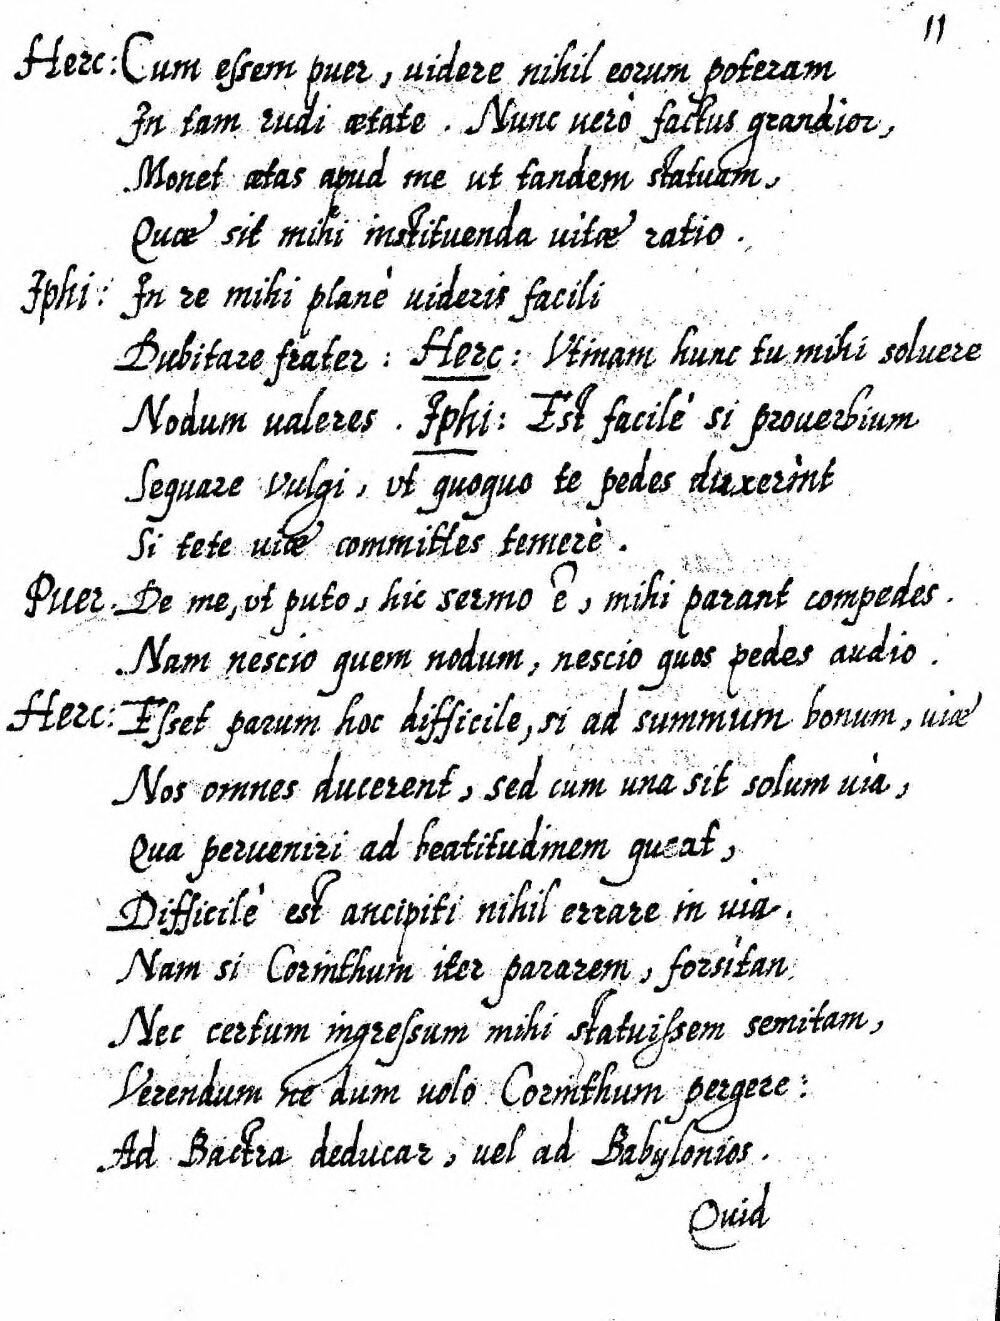 11
Herc: Cum essem puer, uidere nihil eorum poteram
In tam rudi ætate. Nunc uerò factus grandior,
Monet ætas apud me ut tandem statuam,
Quæ sit mihi instituenda uitæ ratio.
Iphi: In re mihi planè uideris facili
Dubitare frater: Herc: Vtinam hunc tu mihi soluere
Nodum ualeres. Iphi: Est facilè si prouerbium
Sequare vulgi, vt quoquo te pedes duxerint
Si tete uiæ committes temerè.
Puer. De me, vt puto, hic sermo ē, mihi parant compedes.
Nam nescio quem nodum, nescio quos pedes audio.
Herc: Esset parum hoc difficile, si ad summum bonum, uiæ
Nos omnes ducerent, sed cum una sit solum uia,
Qua perueniri ad beatitudinem queat,
Difficilè est ancipiti nihil errare in uia.
Nam si Corinthum iter pararem, forsitan
Nec certum ingressum mihi statuissem semitam,
Verendum ne dum uolo Corinthum pergere:
Ad Bactra deducar, uel ad Babylonios.
Quid